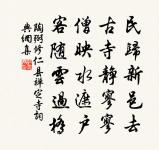 民歸新邑去
古寺靜寥寥
僧映水簾戶
客隨雲過橋
陶弼修仁县禅空寺詞
典網集